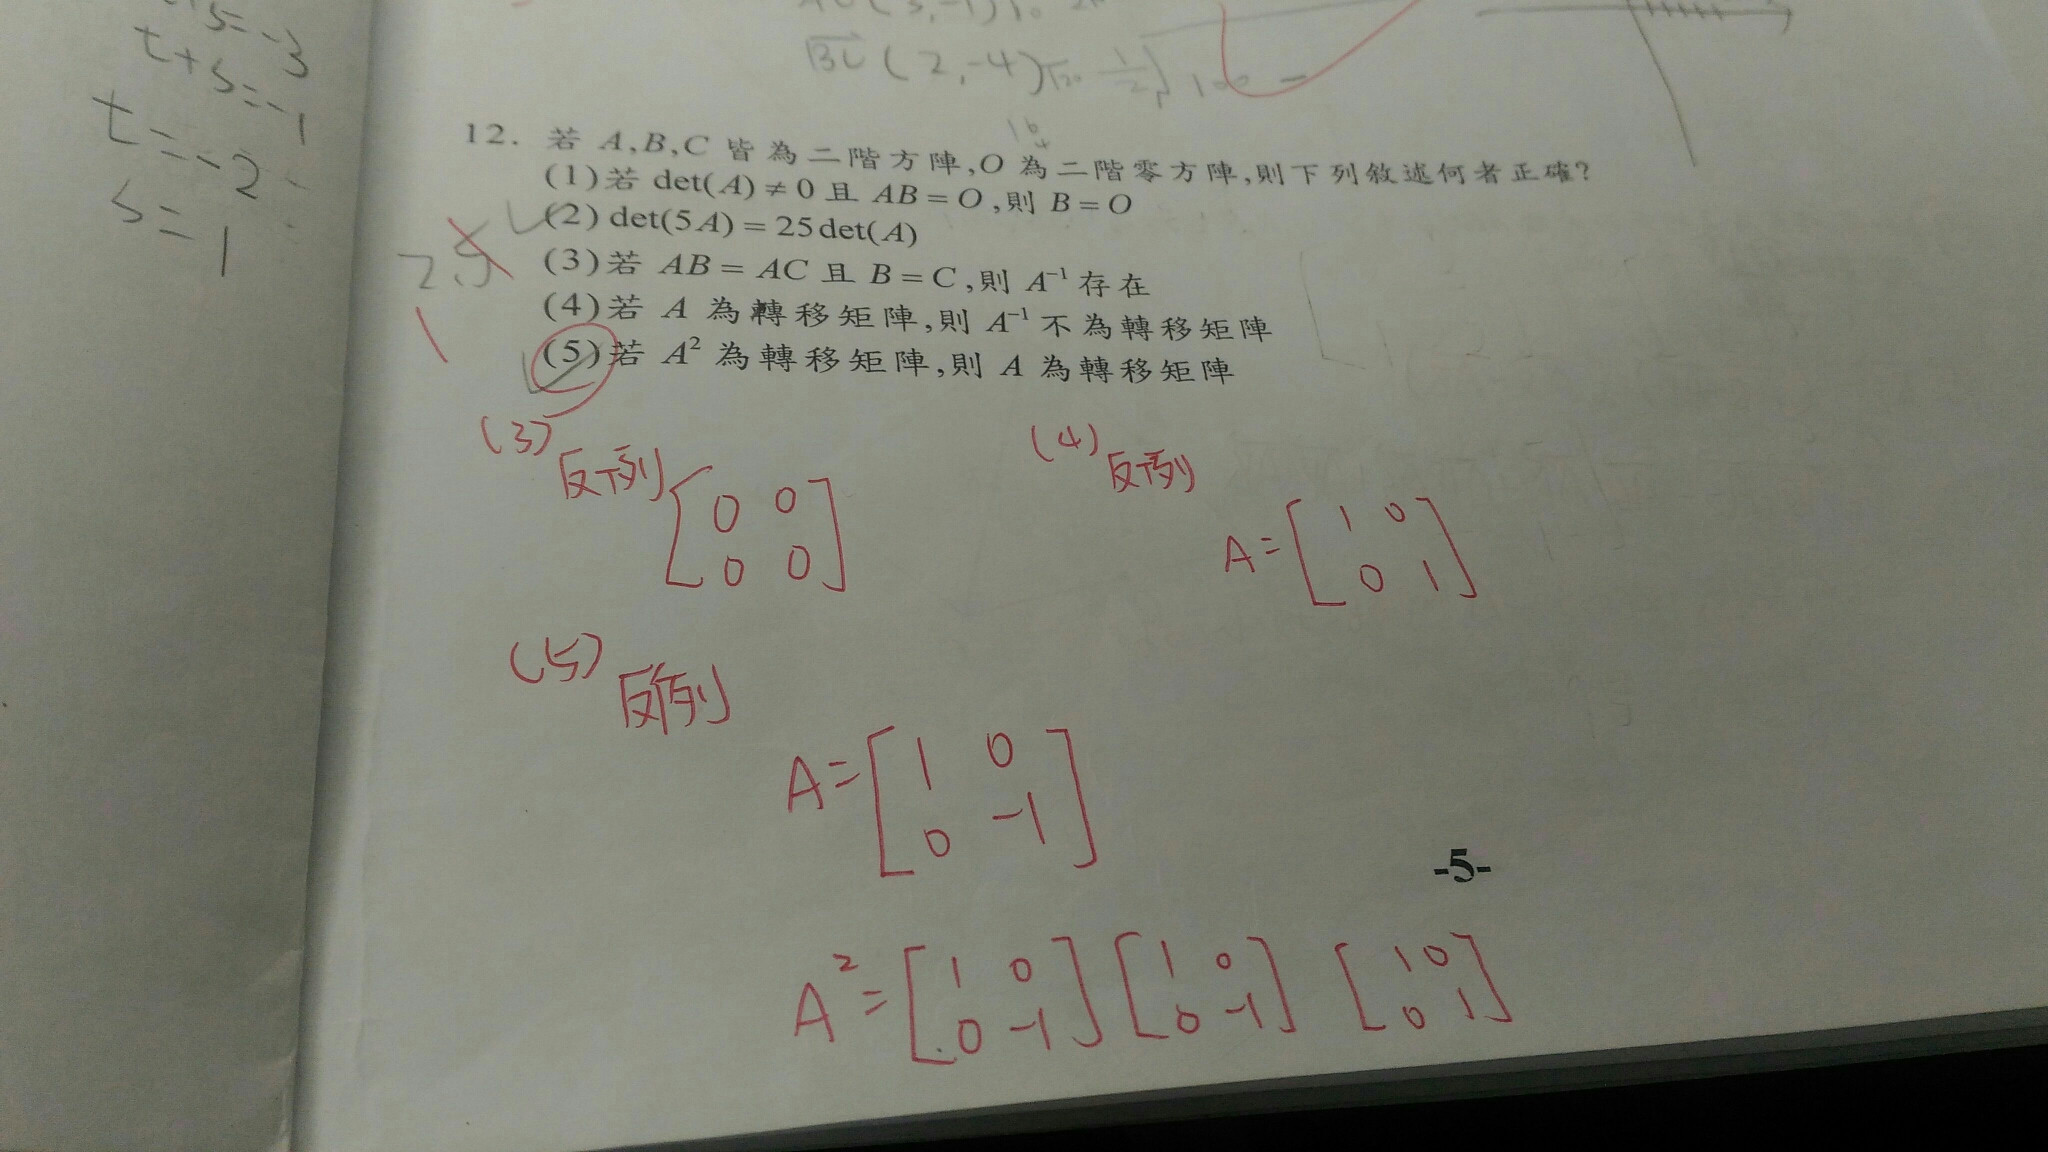 5=-3
t+s=-1
t=-2
s=1
BC (2,-4) √20
12. 若 A,B,C 皆為二階方陣,O 為二階零方陣,則下列敘述何者正確?
(1)若 det(A)≠0 且 AB=O,則 B=O
(2) det(5A)=25det(A)
(3)若 AB=AC 且 B=C,則 A⁻¹ 存在
(4)若 A 為轉移矩陣,則 A⁻¹ 不為轉移矩陣
(5)若 A² 為轉移矩陣,則 A 為轉移矩陣
2,5
(3) 反例 [0 0
0 0]
(4) 反例
A=[1 0
0 1]
(5) 反例
A=[1 0
0 -1]
A²=[1 0 [1 0 [1 0
0 -1] 0 -1] 0 1]
-5-